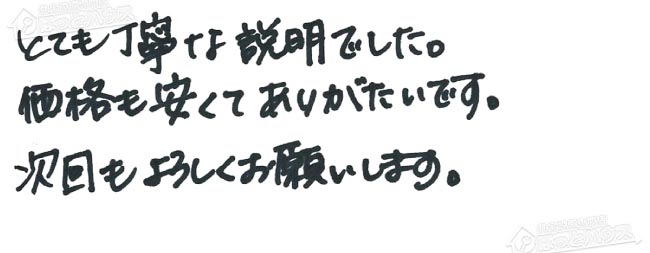 とても丁寧な説明でした。
価格も安くてありがたいです。
次回もよろしくお願いします。